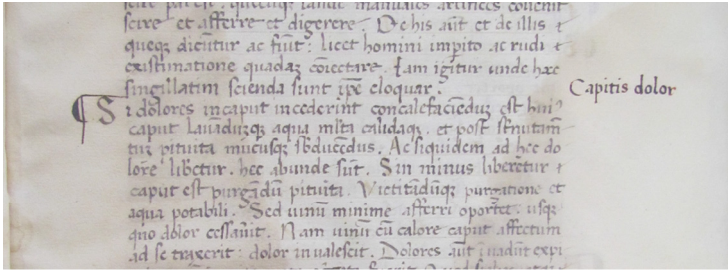 scire et afferre et digerere. De his aut et de illis
queq dicutur ac fiut: licet homini impito ac rudi
existimatione quadaz coiectare. Iam igitur unde hæc
singillatim scienda sunt ipe eloquar.
Capitis dolor
¶ Si dolores in caput incederint concalefaciēduz est hui
caput lauāduzq aqua mlta calidaq. et post strnutam
tuz pituita mucusq sbducēdus. Ac siquidem ad hec do
lore liberetur. hec abunde sūt. Sin minus liberetur
caput est purgādū pituita. Victitādūq purgatione et
aqua potabili. Sed uinū minime afferri oportet. usq
quo dolor cessauit. Nam uinū cū calore caput affectum
ad se traxerit: dolor inualescit. Dolores aūt iuadūt expi